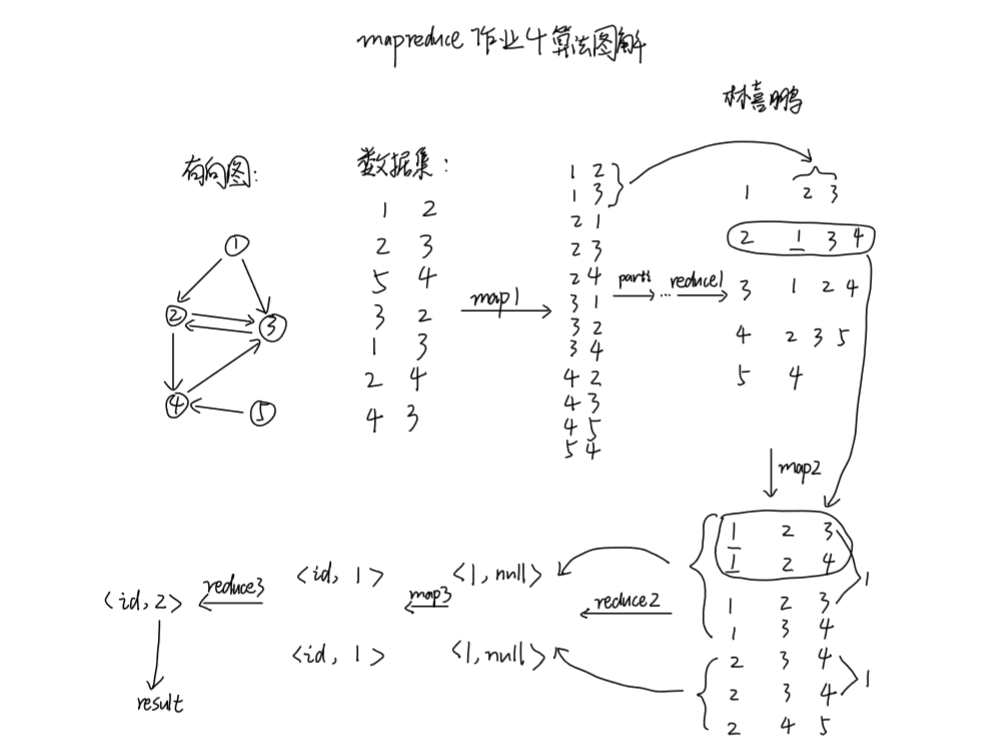 mapreduce 作业4算法图解
林喜鹏
有向图:
1
2
3
4
5
数据集:
1 2
2 3
5 4
3 2
1 3
2 4
4 3
map1
1 2
1 3
2 1
2 3
2 4
3 1
3 2
3 4
4 2
4 3
4 5
5 4
part1 ... reduce1
1 2 3
2 1 3 4
3 1 2 4
4 2 3 5
5 4
map2
1 2 3
1 2 4
1 2 3
1 3 4
1
2 3 4
2 3 4
2 4 5
1
reduce2
<1, null>
<1, null>
map3
<id, 1>
<id, 1>
reduce3
<id, 2>
result